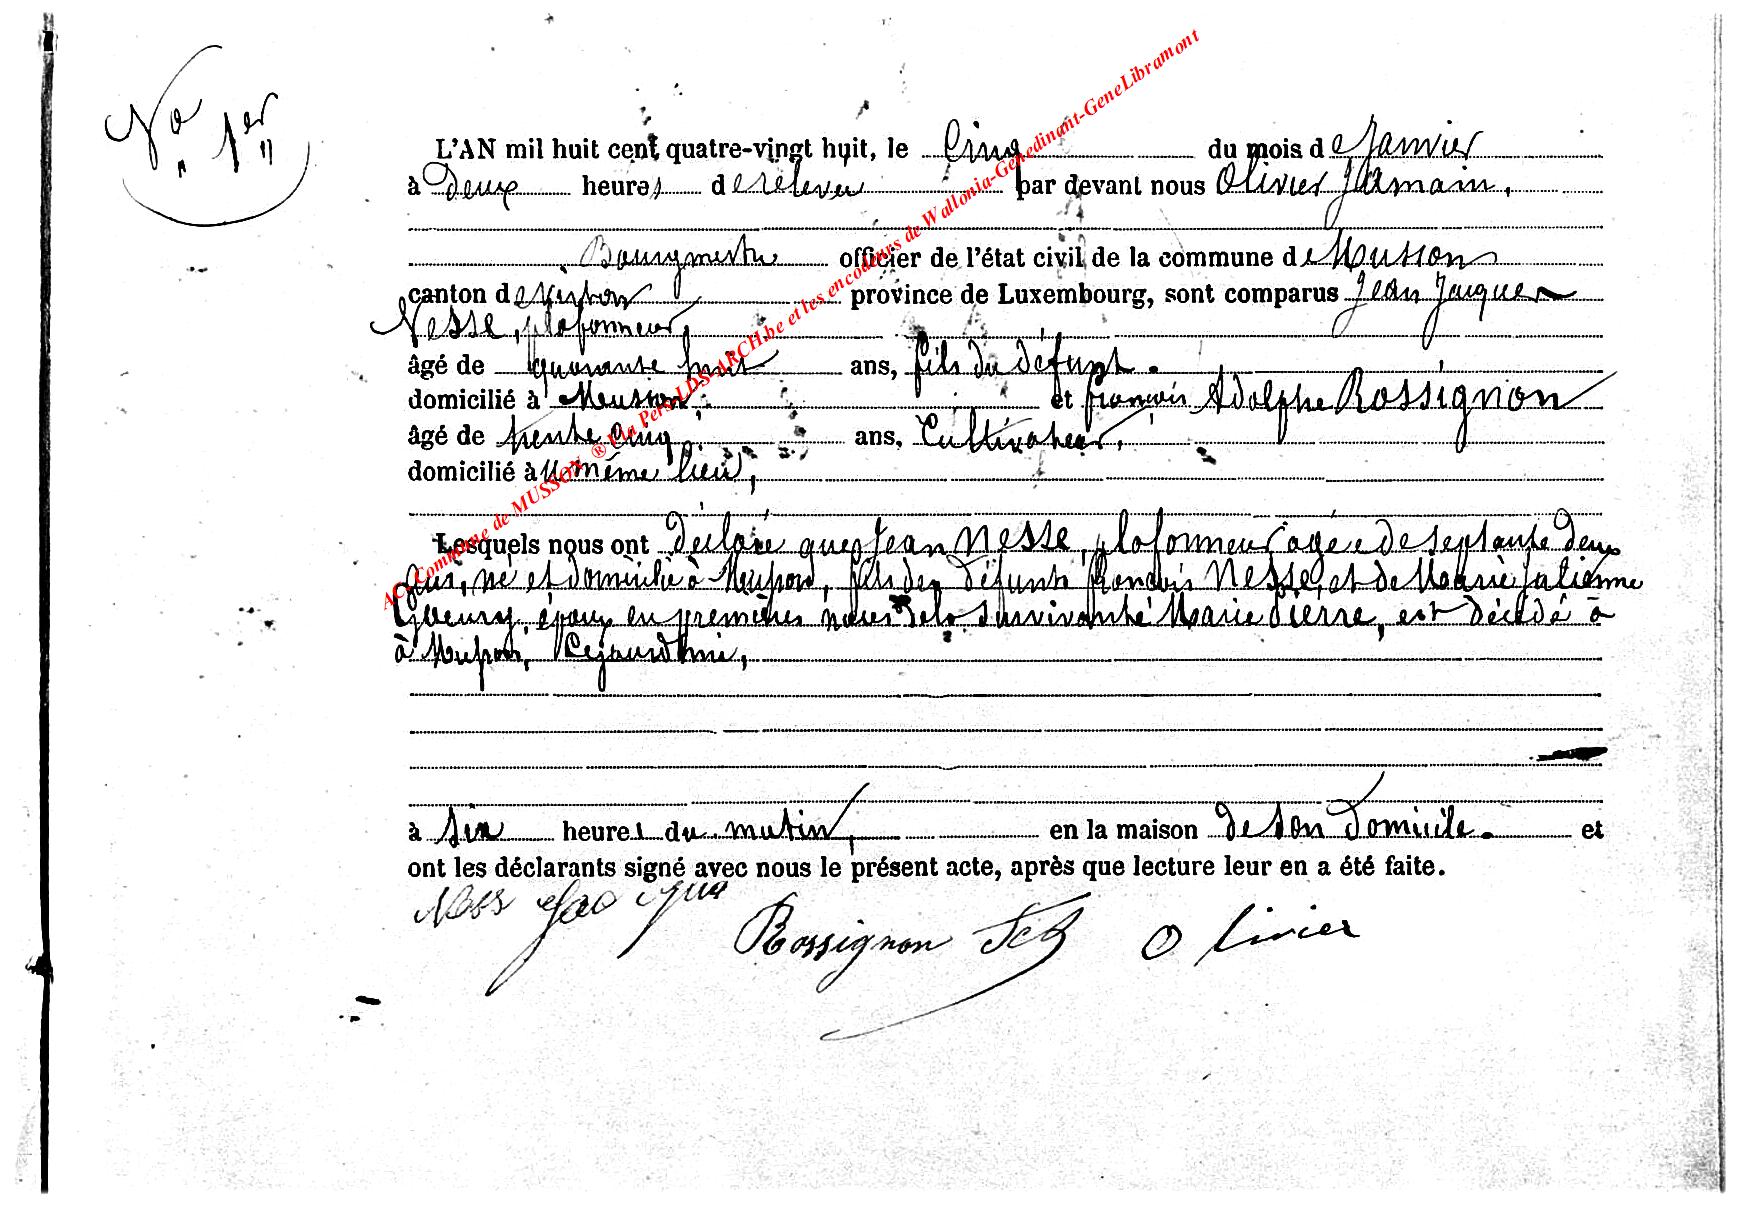 No 1er
L'AN mil huit cent quatre-vingt huit, le Cinq du mois de Janvier
à Deux heures de relevée par devant nous Olivier Jermain,
Bourgmestre officier de l'état civil de la commune de Musson
canton de Virton province de Luxembourg, sont comparus Jean Jacques
Nesse, plafonneur,
âgé de quarante huit ans, fils du défunt.
domicilié à Musson, et françois Adolphe Rossignon
âgé de trente cinq ans, Cultivateur,
domicilié à même lieu,
Lesquels nous ont déclaré que Jean Nesse, plafonneur agé de septante deux
ans, né et domicilié à Musson, fils des défunts françois Nesse, et de Marie Julienne
époux en premières noces de la survivante Marie Pierre, est décédé à
à Musson, Cejourd'hui,
à six heures du matin, en la maison de son Domicile. et
ont les déclarants signé avec nous le présent acte, après que lecture leur en a été faite.
Ness Jac que
Rossignon Olivier
ACC Commune de MUSSON ® Via Pers-LDS-ARCH.be et les encodeurs de Wallonia-Genedinant-GeneLibramont